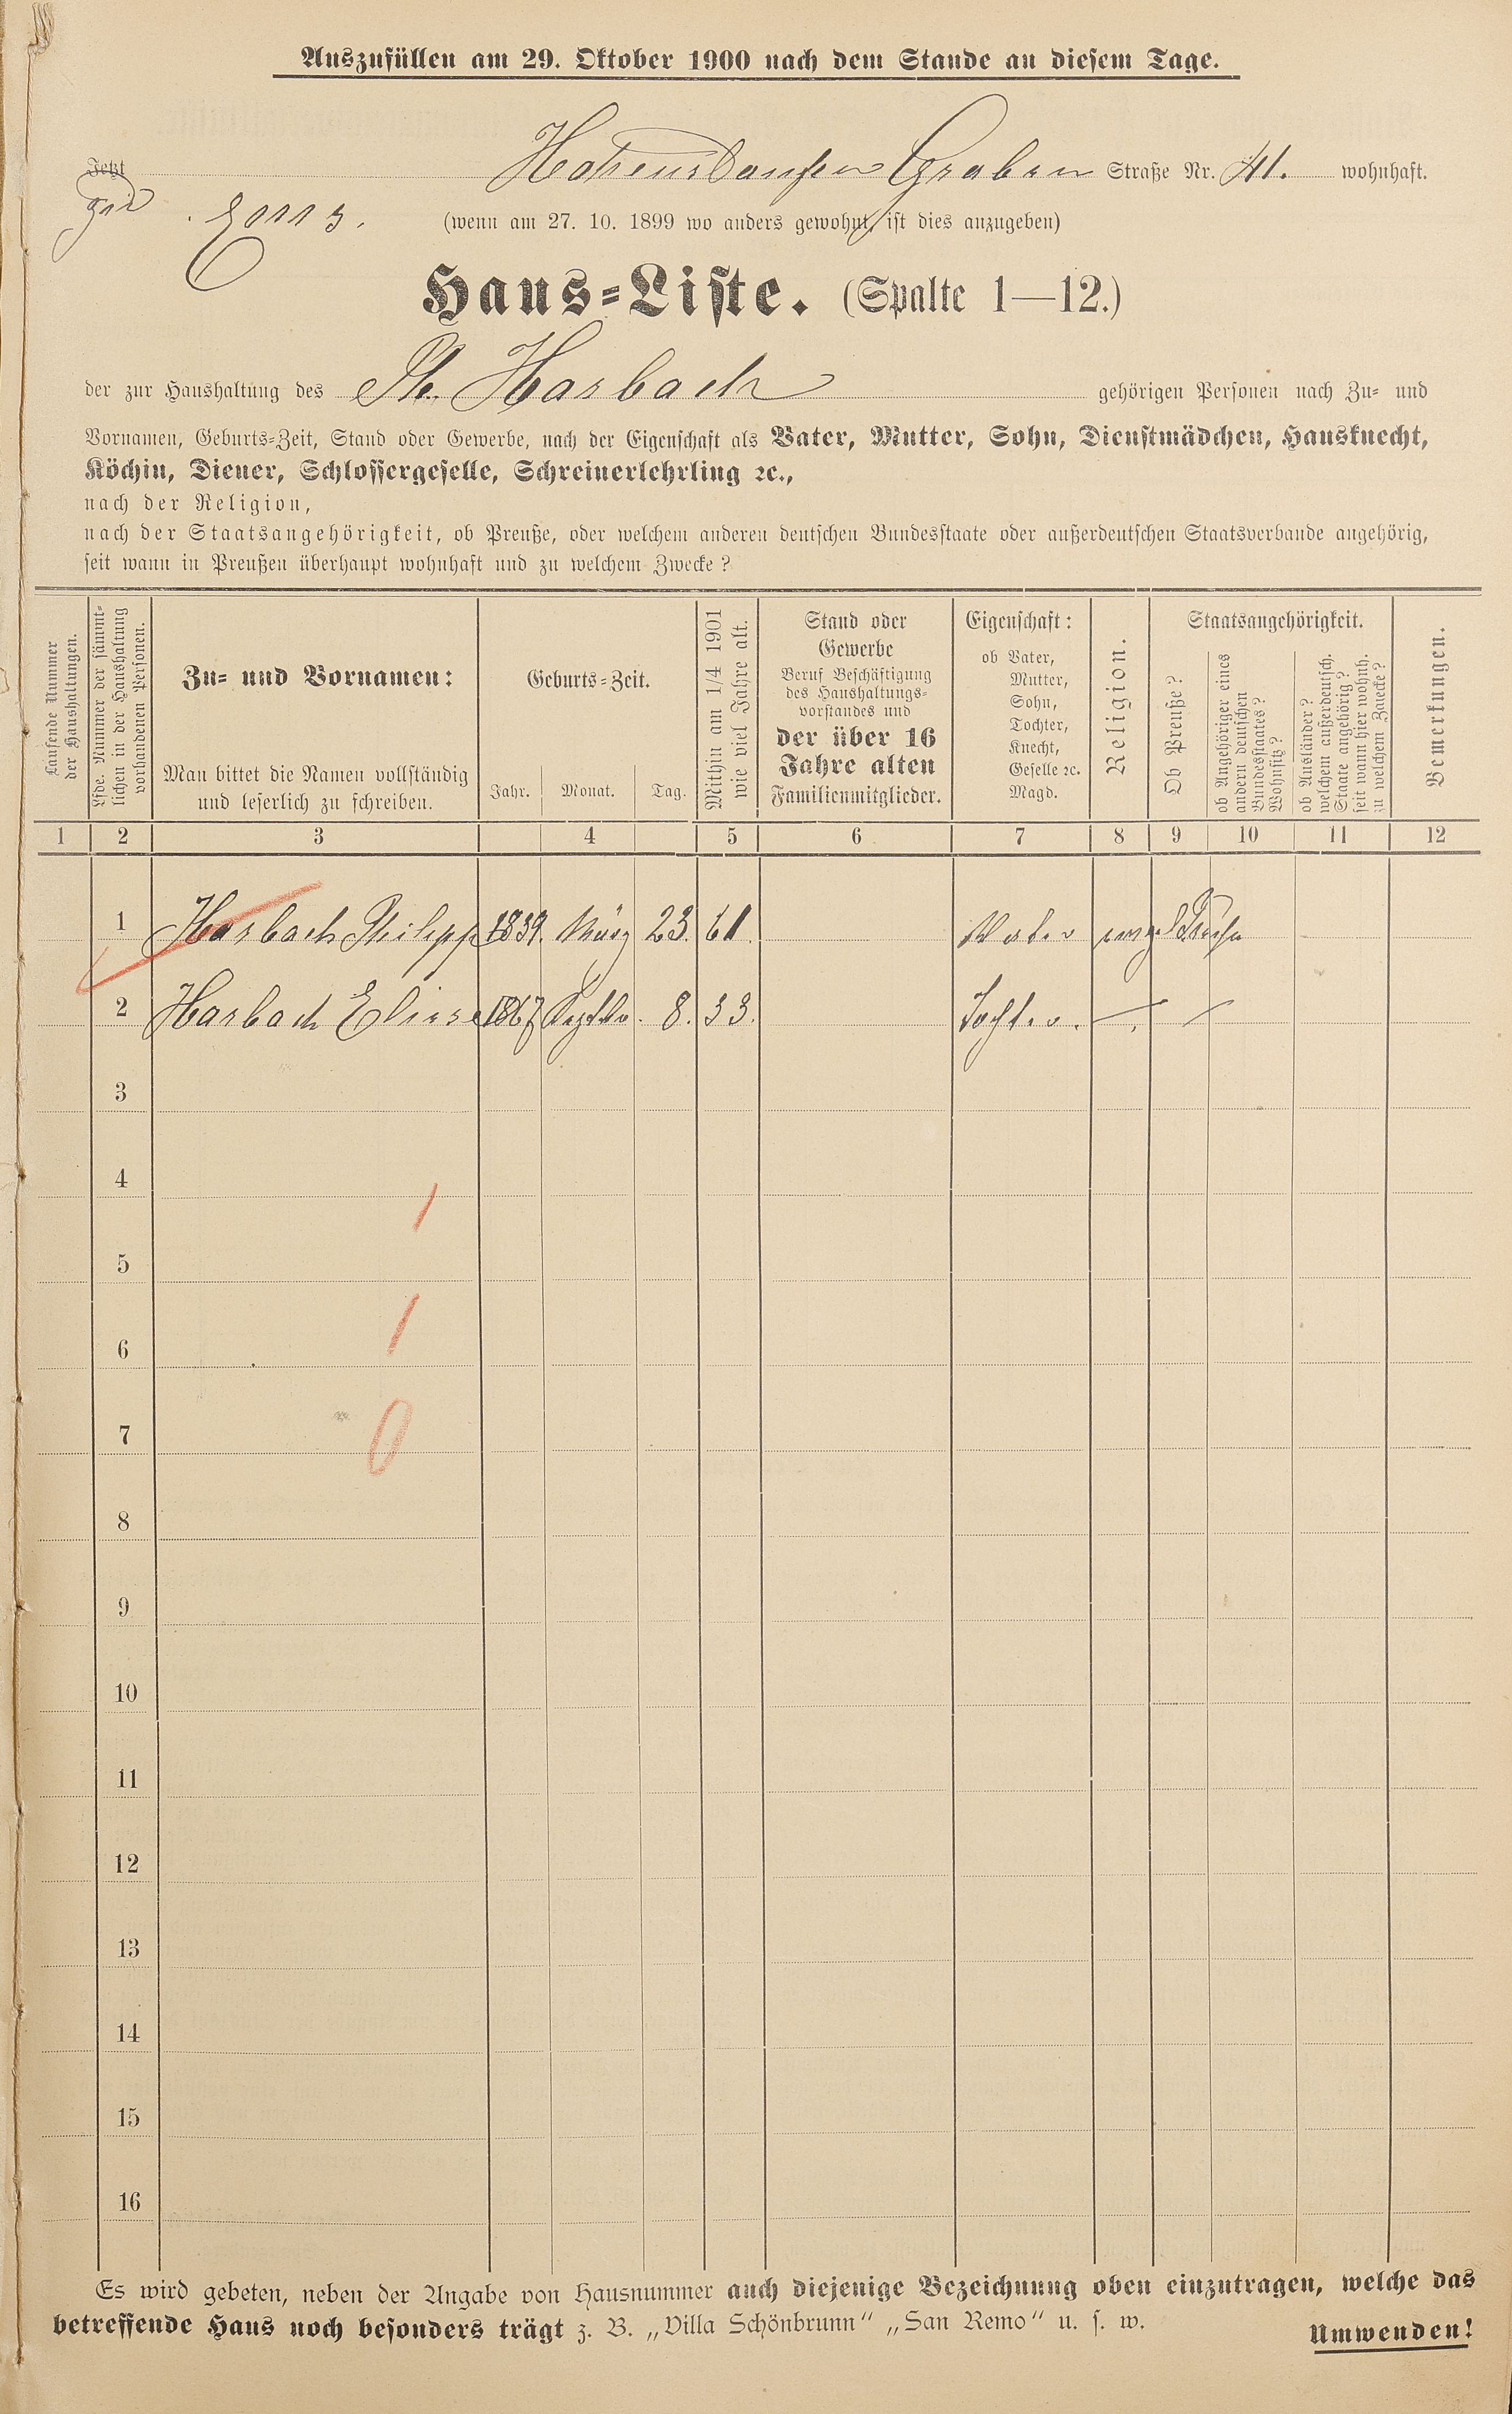 Auszufüllen am 29. Oktober 1900 nach dem Stande an diesem Tage.
Jetzt Hohenstaufen Graben Straße Nr. 41. wohnhaft.
Ems. (wenn am 27. 10. 1899 wo anders gewohnt, ist dies anzugeben)
Haus-Liste. (Spalte 1—12.)
der zur Haushaltung des Ph. Harbach gehörigen Personen nach Zu- und
Vornamen, Geburts-Zeit, Stand oder Gewerbe, nach der Eigenschaft als Vater, Mutter, Sohn, Dienstmädchen, Hausknecht,
Köchin, Diener, Schlossergeselle, Schreinerlehrling ꝛc.,
nach der Religion,
nach der Staatsangehörigkeit, ob Preuße, oder welchem anderen deutschen Bundesstaate oder außerdeutschen Staatsverbande angehörig,
seit wann in Preußen überhaupt wohnhaft und zu welchem Zwecke?
Laufende Nummer
der Haushaltungen.
Lfde. Nummer der sämmt-
lichen in der Haushaltung
vorhandenen Personen.
Zu- und Vornamen:
Man bittet die Namen vollständig
und leserlich zu schreiben.
Geburts-Zeit.
Jahr. Monat. Tag.
Mithin am 1/4 1901
wie viel Jahre alt.
Stand oder
Gewerbe
Beruf Beschäftigung
des Haushaltungs-
vorstandes und
der über 16
Jahre alten
Familienmitglieder.
Eigenschaft:
ob Vater,
Mutter,
Sohn,
Tochter,
Knecht,
Geselle ꝛc.
Magd.
Religion.
Staatsangehörigkeit.
Ob Preuße?
ob Angehöriger eines
andern deutschen
Bundesstaates?
Wohnsitz?
ob Ausländer?
welchem außerdeutsch.
Staate angehörig?
seit wann hier wohnh.
zu welchem Zwecke?
Bemerkungen.
1 2 3 4 5 6 7 8 9 10 11 12
1 Harbach Philipp 1839. März 23. 61. Vater evgl Preuße
2 Harbach Elise 1867 Septbr. 8. 33. Tochter. — —
3
4
5
6
7
8
9
10
11
12
13
14
15
16
1
1
0
Es wird gebeten, neben der Angabe von Hausnummer auch diejenige Bezeichnung oben einzutragen, welche das
betreffende Haus noch besonders trägt z. B. „Villa Schönbrunn“ „San Remo“ u. s. w.
Umwenden!